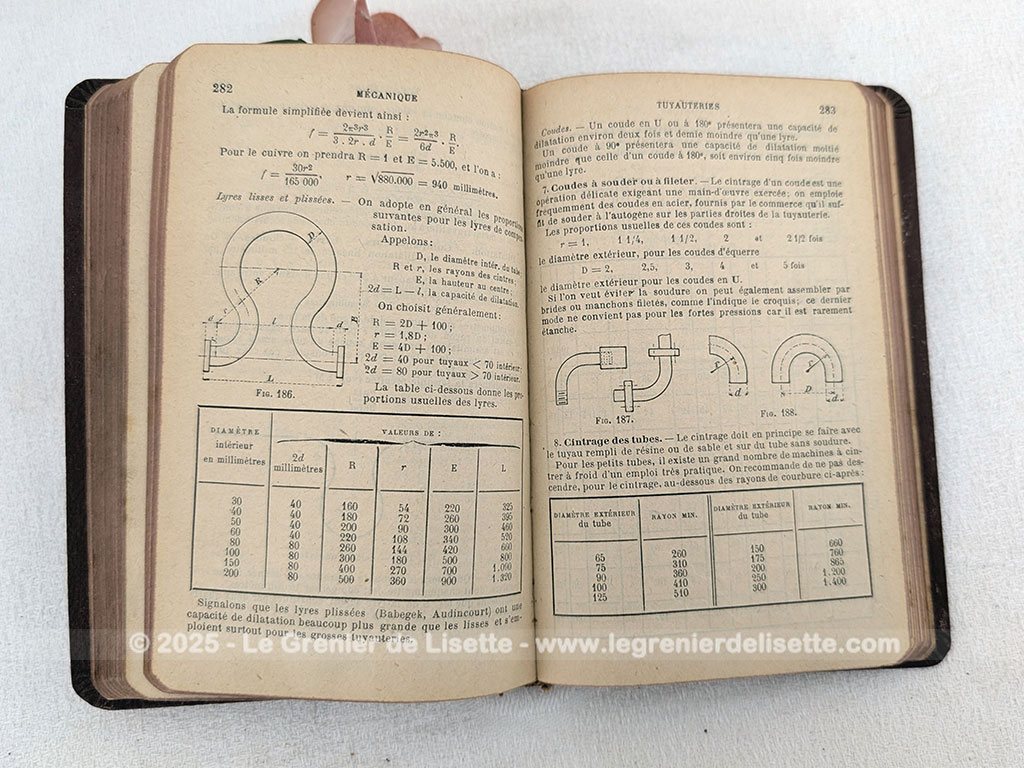 282
MÉCANIQUE
La formule simplifiée devient ainsi :
f = 2π³r³ / 3 . 2r . d · R/E = 2r²π³ / 6d · R/E.
Pour le cuivre on prendra R = 1 et E = 5.500, et l'on a :
f = 30r² / 165 000' r = √880.000 = 940 millimètres.
Lyres lisses et plissées. — On adopte en général les proportions
suivantes pour les lyres de
sation.
Appelons :
D, le diamètre intér. du tube
R et r, les rayons des cintres;
E, la hauteur au centre;
2d = L — l, la capacité de dilatation.
On choisit généralement :
R = 2D + 100;
r = 1,8D;
E = 4D + 100;
2d = 40 pour tuyaux < 70 intérieur.
2d = 80 pour tuyaux > 70 intérieur.
La table ci-dessous donne les pro-
portions usuelles des lyres.
D
R
r
d
l
d
E
L
FIG. 186.
DIAMÈTRE intérieur en millimètres
VALEURS DE :
2d millimètres R r E L
30 40 160 54 220 325
40 40 180 72 260 395
50 40 200 90 300 460
60 40 220 108 340 520
80 80 260 144 420 660
100 80 300 180 500 800
150 80 400 270 700 1.090
200 80 500 360 900 1.320
Signalons que les lyres plissées (Babegek, Audincourt) ont une
capacité de dilatation beaucoup plus grande que les lisses et s'em-
ploient surtout pour les grosses tuyauteries.
TUYAUTERIES
283
Coudes. — Un coude en U ou à 180° présentera une capacité de
dilatation environ deux fois et demie moindre qu'une lyre.
Un coude à 90° présentera une capacité de dilatation moitié
moindre que celle d'un coude à 180°, soit environ cinq fois moindre
qu'une lyre.
7. Coudes à souder ou à fileter. — Le cintrage d'un coude est une
opération délicate exigeant une main-d'œuvre exercée; on emploie
fréquemment des coudes en acier, fournis par le commerce qu'il suf-
fit de souder à l'autogène sur les parties droites de la tuyauterie.
Les proportions usuelles de ces coudes sont :
r = 1, 1 1/4, 1 1/2, 2 et 2 1/2 fois
le diamètre extérieur, pour les coudes d'équerre
D = 2, 2,5, 3, 4 et 5 fois
le diamètre extérieur pour les coudes en U.
Si l'on veut éviter la soudure on peut également assembler par
brides ou manchons filetés, comme l'indique le croquis; ce dernier
mode ne convient pas pour les fortes pressions car il est rarement
étanche.
r
d
r
D
d
FIG. 187.
FIG. 188.
8. Cintrage des tubes. — Le cintrage doit en principe se faire avec
le tuyau rempli de résine ou de sable et sur du tube sans soudure.
Pour les petits tubes, il existe un grand nombre de machines à cin-
trer à froid d'un emploi très pratique. On recommande de ne pas des-
cendre, pour le cintrage, au-dessous des rayons de courbure ci-après :
DIAMÈTRE EXTÉRIEUR du tube RAYON MIN. DIAMÈTRE EXTÉRIEUR du tube RAYON MIN.
65 260 150 660
75 310 175 760
90 360 200 865
100 410 250 1.200
125 510 300 1.400
© 2025 - Le Grenier de Lisette - www.legrenierdelisette.com